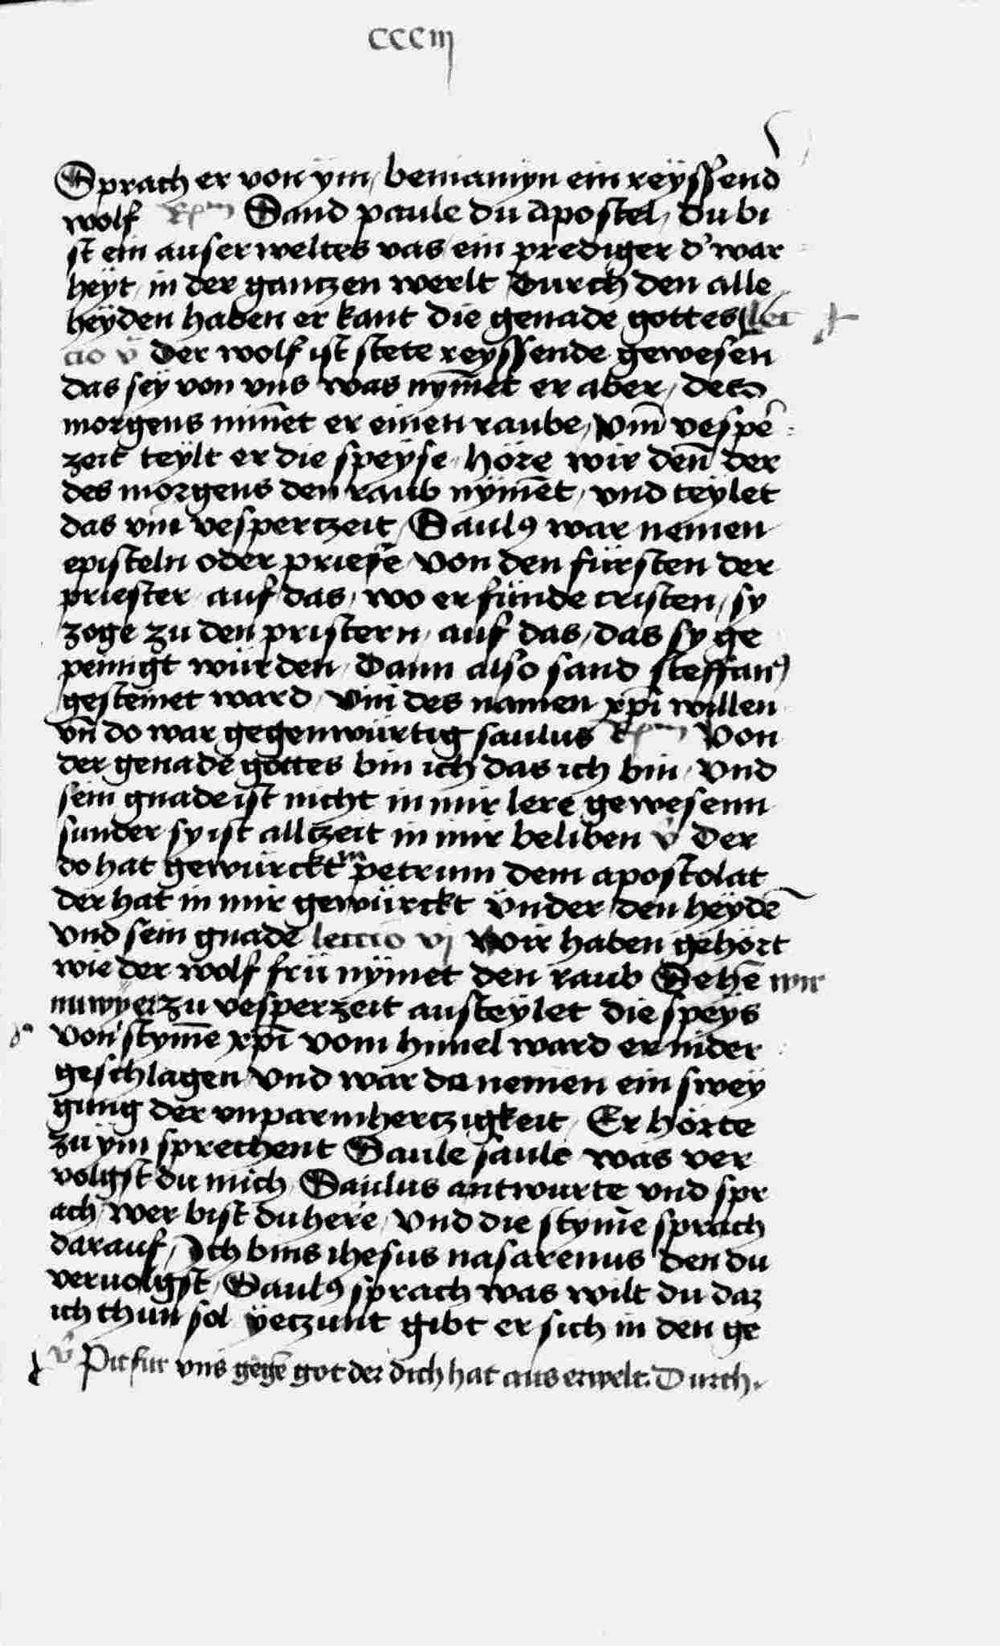 ccciij
Sprach er von ym / beniamyn ein reÿssend
wolf Rm Sand paule du Apostel / du bi
st ein auserweltes vas / ein prediger d' war
heÿt / in der gantzen werlt Durch den alle
heÿden haben erkant die genade gottes lec
cio v Der wolf ist stete reÿssende gewesen
das seÿ von vns was nÿm̄et er aber / des
morgens nim̄et er einen raube / Vm̄ vesper
zeit teÿlt er die speÿse / höre wir den̄ der
des morgens den raub nÿm̄et / vnd teÿlet
das vm vespertzeit / Saulꝰ war nemen
episteln oder priefe von den fürsten der
priester auf das / wo er fünde cristen / sy
zoge zu den pristern / auf das / das sy ge
peinigt würden / Dann also sand steffanꝰ
gesteinet ward / vm̄ des namen xp̄i willen
vn̄ do war gegenwürtig saulus Rm Von
der genade gottes bin ich das ich bin / Vnd
sein gnade ist nicht in mir lere gewesenn
sunder sy ist alltzeit in mir beliben v̊ Der
do hat gewürckt in petrum dem apostolat
der hat in mir gewürckt vnder den heÿdē
vnd sein gnade leccio vj Wir haben gehört
wie der wolf frü nÿmet den raub Sehē wir
nu wÿ er zu vesperzeit austeÿlet die speÿs
von d' stym̄e xp̄i vom himel ward er nider
geschlagen / Vnd war da nemen ein swey
gung der vnparmhertzigkeit / Er hörte
zu ym sprechent Saule saule was ver
volgst du mich / Saulus antwurte vnd spr
ach / wer bist du here / Vnd die styme sprach
darauf / Ich bins ihesus nasarenus den du
veruolgst / Saulꝰ sprach was wilt du daz
ich thun sol ÿetzunt gibt er sich in den ge
v̊ Pit fur vns gegē got der dich hat aus erwelt. Durch.